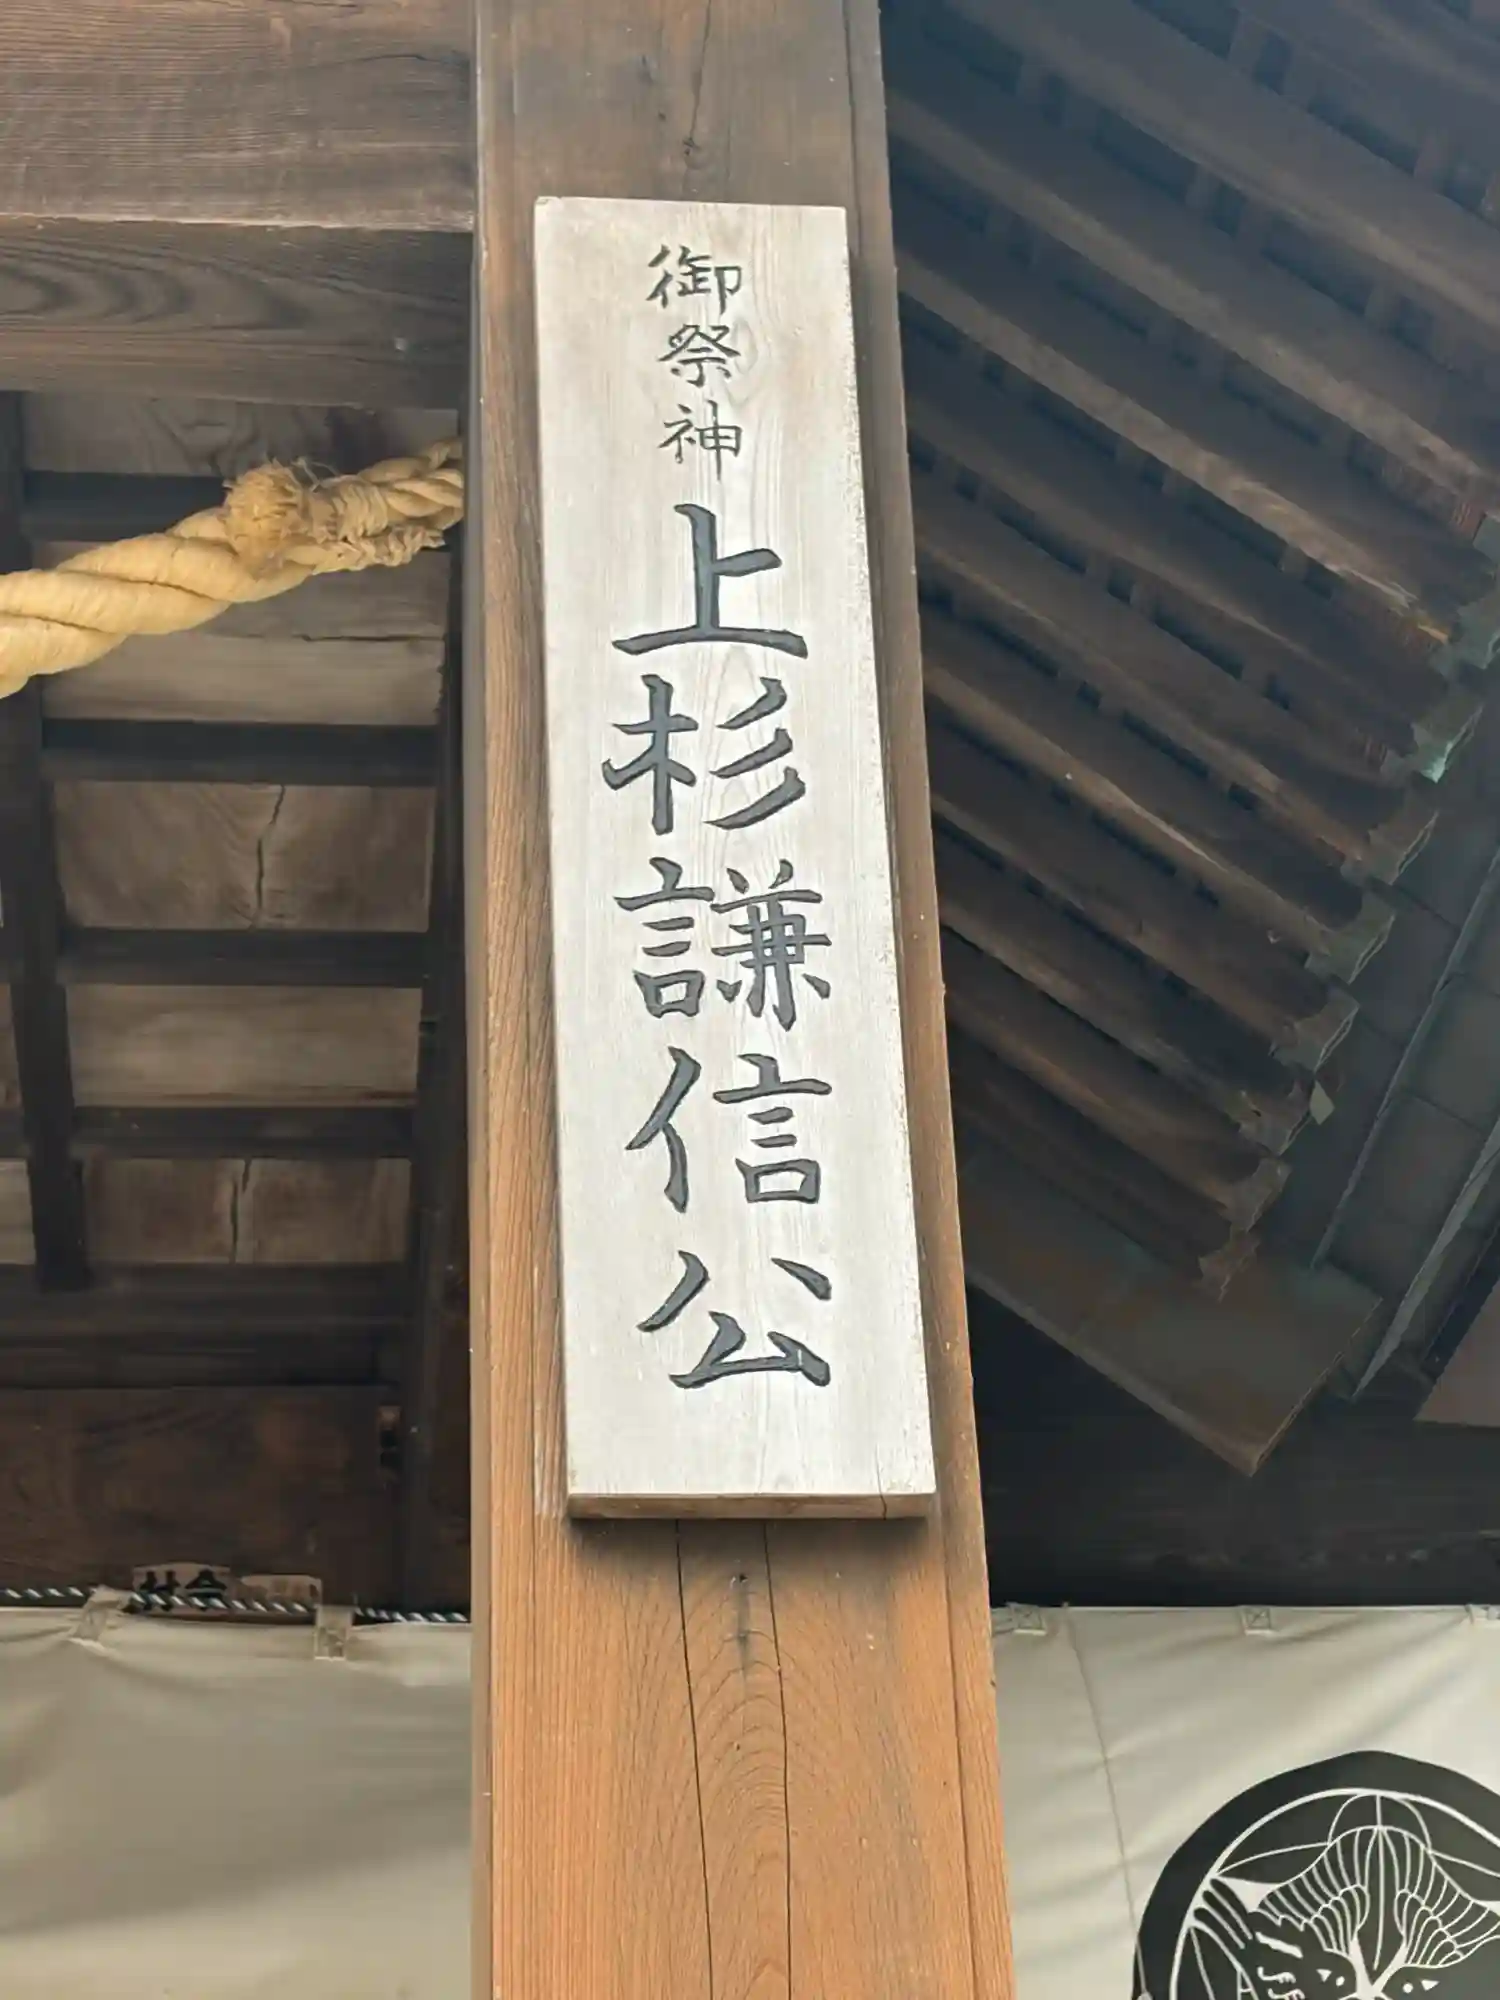 御祭神 上杉謙信公